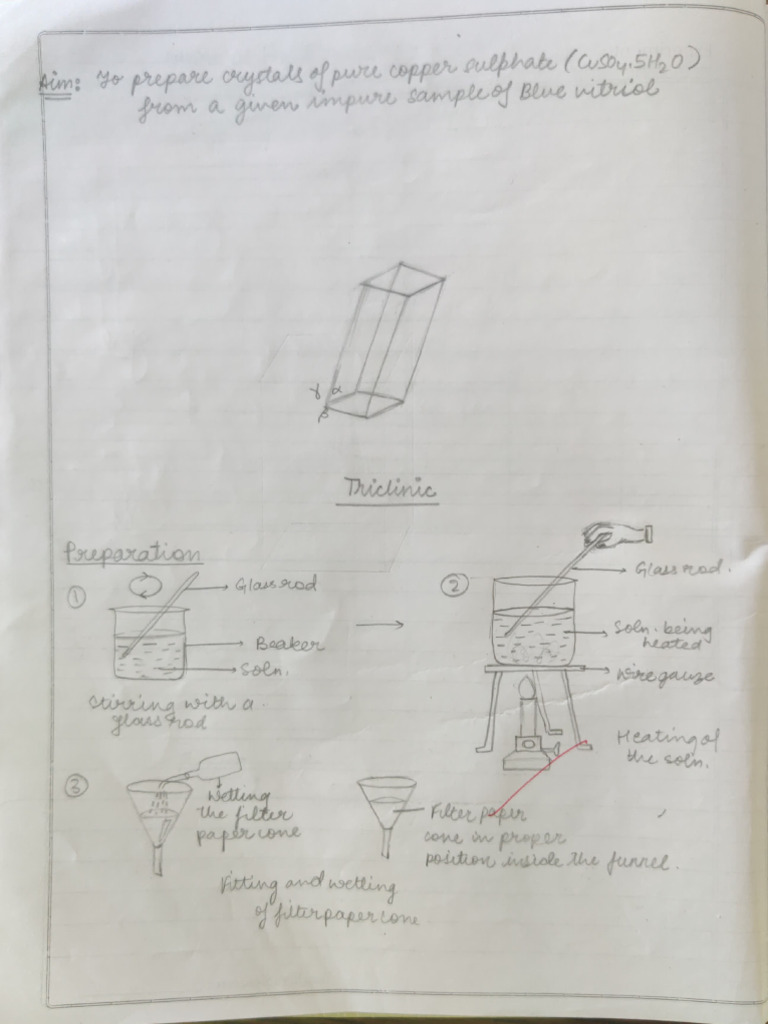 Aim: To prepare crystals of pure copper sulphate (CuSO4.5H2O)
from a given impure sample of Blue vitriol
γ α
β
Triclinic
Preparation
① Glass rod
Beaker
Soln.
Stirring with a
glass rod
② Glass rod.
Soln. being
heated
Wire gauze
Heating of
the soln.
③ Wetting
the filter
paper cone
Filter paper
cone in proper
position inside the funnel.
Fitting and wetting
of filter paper cone.